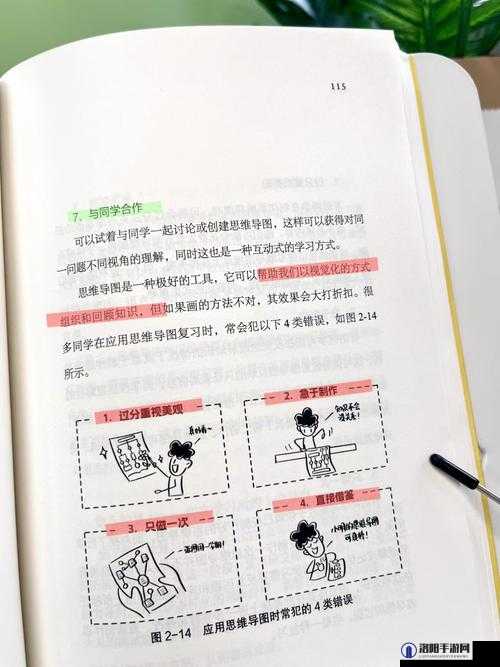 115
7. 与同学合作
可以试着与同学一起讨论或创建思维导图，这样可以获得对同
一问题不同视角的理解，同时这也是一种互动式的学习方式。
思维导图是一种极好的工具，它可以帮助我们以视觉化的方式
组织和回顾知识，但如果画的方法不对，其效果会大打折扣。很
多同学在应用思维导图复习时，常会犯以下4类错误，如图2-14
所示。
1. 过分重视美观
真好看~
2. 急于制作
知识不会
没关系！
3. 只做一次
4. 直接借鉴
图2-14 应用思维导图时常犯的4类错误
洛阳手游网